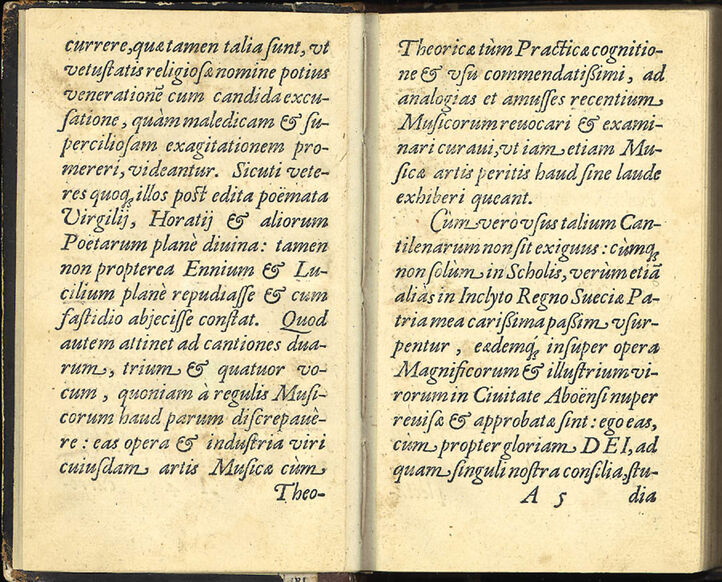 currere, quæ tamen talia ſunt, vt
vetuſtatis religioſæ nomine potius
venerationē cum candida excu-
ſatione, quàm maledicam & ſu-
percilioſam exagitationem pro-
mereri, videantur. Sicuti vete-
res quoq; illos poſt edita poëmata
Virgilij, Horatij & aliorum
Poëtarum planè diuina: tamen
non propterea Ennium & Lu-
cilium planè repudiaſſe & cum
faſtidio abjeciſſe conſtat. Quod
autem attinet ad cantiones dua-
rum, trium & quatuor vo-
cum, quoniam à regulis Muſi-
corum haud parum diſcrepauê-
re: eas opera & induſtria viri
cuiuſdam artis Muſicæ cùm
Theo-
Theoricæ tùm Practicæ cognitio-
ne & vſu commendatiſſimi, ad
analogias et amuſſes recentium
Muſicorum reuocari & exami-
nari curaui, vt iam etiam Mu-
ſicæ artis peritis haud ſine laude
exhiberi queant.
Cùm vero vſus talium Can-
tilenarum non ſit exiguus: cùmq;
non ſolùm in Scholis, verùm etiā
alias in Inclyto Regno Sueciæ Pa-
tria mea cariſſima paſſim vſur-
pentur, eædemq; inſuper opera
Magnificorum & illuſtrium vi-
rorum in Ciuitate Aboënſi nuper
reuiſæ & approbatæ ſint: ego eas,
cùm propter gloriam DEI, ad
quam ſinguli noſtra conſilia, ſtu-
A 5 dia